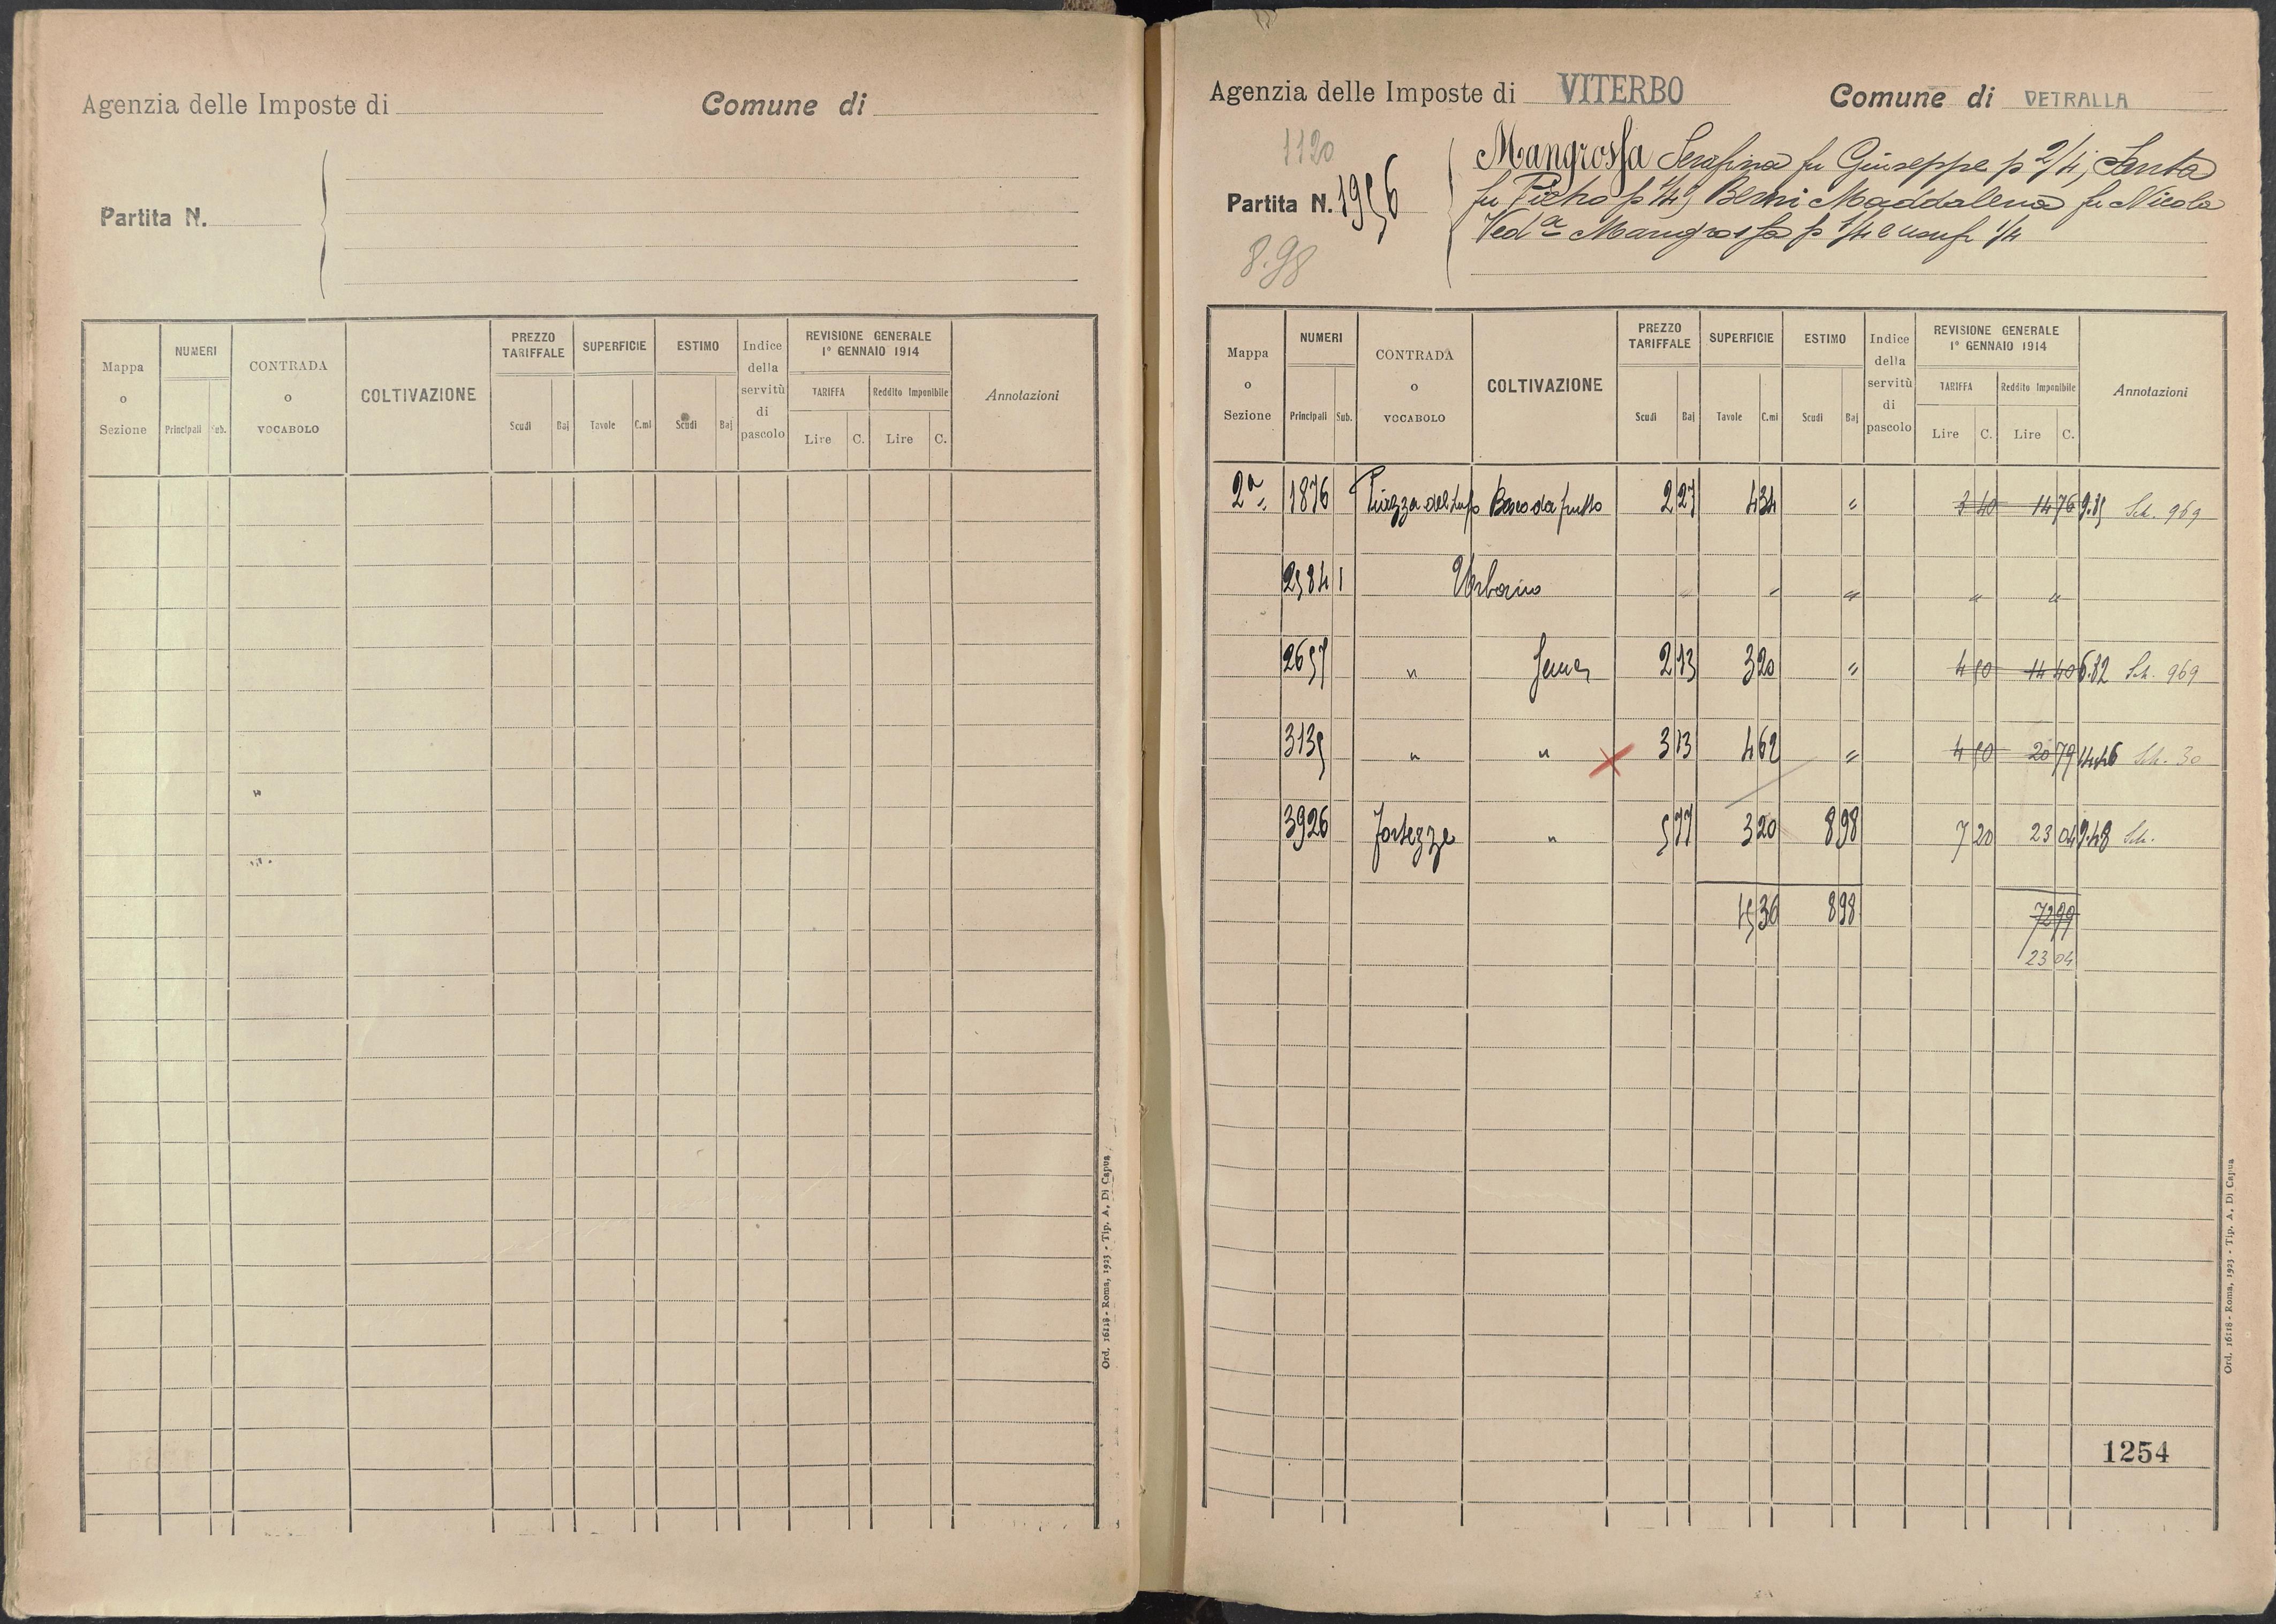 Agenzia delle Imposte di
Comune di
Partita N.
Mappa o Sezione
NUMERI
Principali Sub.
CONTRADA o VOCABOLO
COLTIVAZIONE
PREZZO TARIFFALE
Scudi Baj
SUPERFICIE
Tavole C.mi
ESTIMO
Scudi Baj
Indice della servitù di pascolo
REVISIONE GENERALE
1° GENNAIO 1914
TARIFFA Reddito Imponibile
Lire C. Lire C.
Annotazioni
Ord. 16118 - Roma, 1923 - Tip. A. Di Capua
Agenzia delle Imposte di VITERBO
Comune di VETRALLA
1120
Partita N. 1956
8.98
Mangrossa Serafina fu Giuseppe p 2/4, Santa
fu Pietro p 1/4, Berni Maddalena fu Nicola
Ved.a Mangrossa p 1/4 e usuf. 1/4
Mappa o Sezione
NUMERI
Principali Sub.
CONTRADA o VOCABOLO
COLTIVAZIONE
PREZZO TARIFFALE
Scudi Baj
SUPERFICIE
Tavole C.mi
ESTIMO
Scudi Baj
Indice della servitù di pascolo
REVISIONE GENERALE
1° GENNAIO 1914
TARIFFA Reddito Imponibile
Lire C. Lire C.
Annotazioni
2a 1876 Bosco da frutto 2 27 4 34 " 3 40 14 76 Sch. 969
2584 1 Urbano " " " " "
2657 " Sem. 2 13 3 20 " 4 50 14 40 6.82 Sch. 969
3135 " " 3 13 4 62 " 4 50 20 79 14.46 Sch. 30
3926 Fortezze " 5 77 3 20 8 98 7 20 23 04 9.48 Sch.
15 36 8 98 72 99
23 04
1254
Ord. 16118 - Roma, 1923 - Tip. A. Di Capua